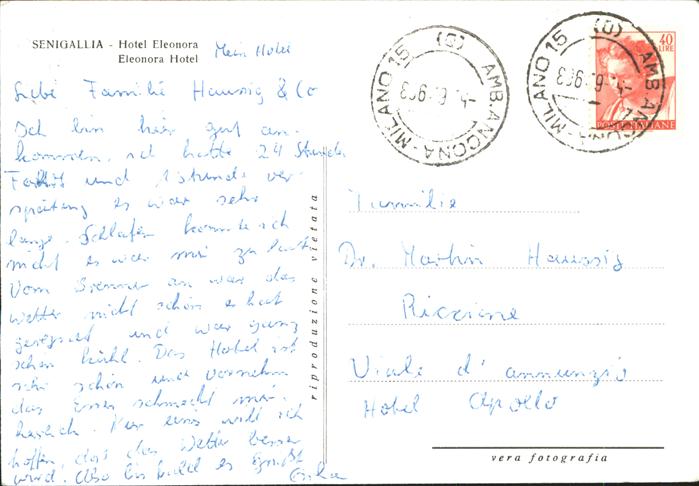 SENIGALLIA - Hotel Eleonora
Eleonora Hotel
Mein Hotel
Liebe Familie Haussig & Co
Ich bin hier gut an-
kommen. ich hatte 24 Stunden
Fahrt und 1 stunde ver
spätung es war sehr
lange. Schlafen konnte ich
nicht es war mir zu laut
Vom Brenner an war das
Wetter nicht schön es hat
geregnet und war ganz
schön kühl. Das Hotel ist
sehr schön und vornehm
das Essen schmeckt mir
herlich. Nur eins will ich
hoffen, das das Wetter besser
wird. Also bis bald es grüßt
riproduzione vietata
MILANO 15 (0) AMB.ANCONA
MILANO 15 (0) AMB.ANCONA
40
LIRE
POSTE ITALIANE
Familie
Dr. Martin Haussig
Riccione
Viale d'annunzio
Hotel Apollo
vera fotografia